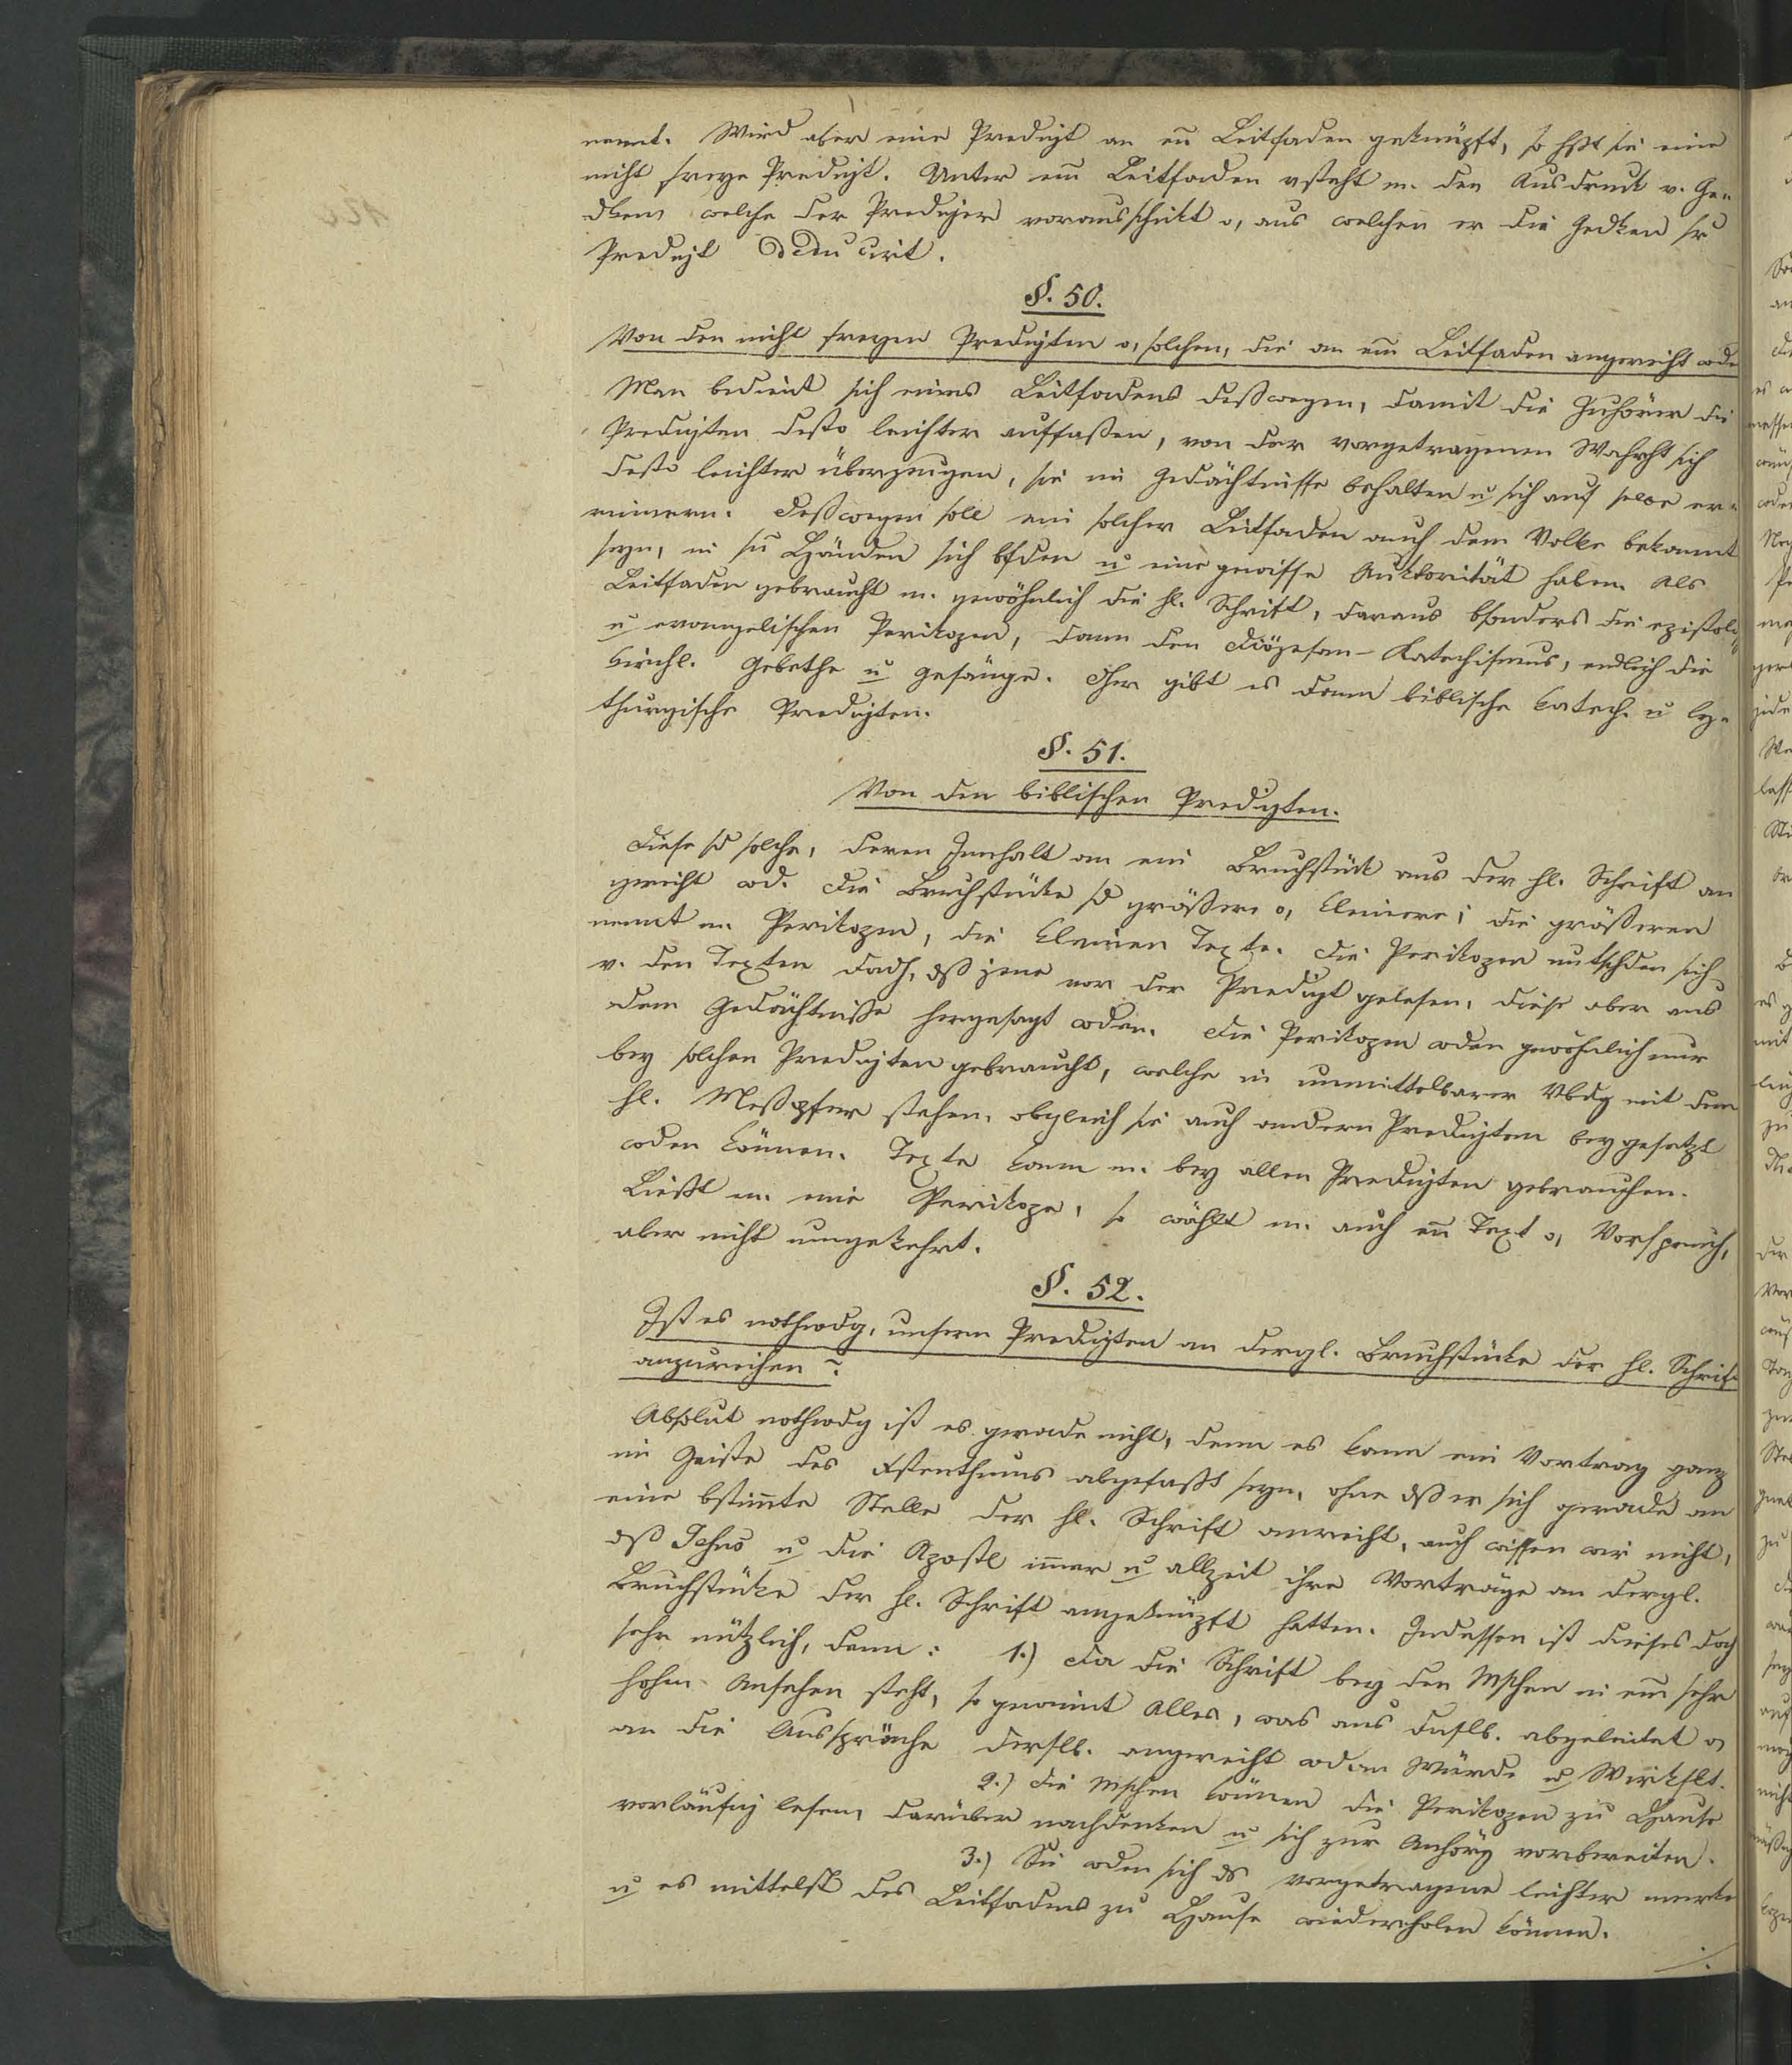 nennt. Wird aber eine Predigt an ein Leitfaden geknüpft, so hßt sie eine
nicht freye Predigt. Unter ein Leitfaden vsteht m. den Ausdruck v. Ge-
dken, welche der Prediger vorausschikt o, aus welchen er die Gedken sr
Predigt deducirt.
§. 50.
Von den nicht freyen Predigten o, solchen, die an ein Leitfaden angereiht wdn
Man bedient sich eines Leitfadens deßwegen, damit die Zuhörer die
Predigten desto leichter auffaßen, von der vorgetragenen Wahrht sich
desto leichter überzeugen, sie im Gedächtnisse behalten u sich auf selbe er-
rinnern. Deßwegen soll ein solcher Leitfaden auch dem Volke bekannt
seyn, in sn Händen sich bfden u eine gewisse Auktorität haben. Als
Leitfaden gebraucht m. gewöhnlich die hl. Schrift, daraus bsonders die epistol.
u evangelischen Perikopen, dann den Diözesan-Katechismus, endlich die
kirchl. Gebethe u Gesänge. Dher gibt es denn biblische katech. u ly-
thurgische Predigten.
§. 51.
Von den biblischen Predigten.
Diese sd solche, deren Innhalt an ein Bruchstük aus der hl. Schrift an
gereiht wd. Die Bruchstüke sd größere o, kleinere; die größeren
nennt m. Perikopen, die kleinen Texte. Die Perikopen untschden sich
v. den Texten dadh, dß jene vor der Predigt gelesen, diese aber aus
dem Gedächtniße hergesagt wden. Die Perikopen wden gewöhnlich nur
bey solchen Predigten gebraucht, welche in unmittelbarer Vbdg mit dem
hl. Meßopfer stehen, obgleich sie auch andern Predigten beygesetzt
wden können. Texte kann m. bey allen Predigten gebrauchen.
Ließt m. eine Perikope, so wählt m. auch ein Text o, Vorspruch,
aber nicht umgekehrt.
§. 52.
Ist es nothwdg, unsern Predigten an dergl. Bruchstüke der hl. Schrift
anzureihen?
Absolut nothwdg ist es gerade nicht, denn es kann ein Vortrag ganz
im Geiste des Xstenthums abgefaßt seyn, ohne dß er sich gerade an
eine bstimte Stelle der hl. Schrift anreiht, auch wissen wir nicht,
dß Jesus u die Apostl imer u allzeit ihre Vorträge an dergl.
Bruchstüke der hl. Schrift angeknüpft hatten. Indessen ist dieses doch
sehr nützlich, denn: 1.) Da die Schrift bey den Mschen in ein sehr
hohen Ansehen steht, so gewinnt Alles, was aus dslb. abgeleitet o,
an die Aussprüche derslb. angereiht wd an Würde u Wirkslt.
2.) Die Mschen können die Perikopen zu Hause
vorläufig lesen, darüber nachdenken u sich zur Anhörg vorbereiten.
3.) Sie wden sich ds vorgetragene leichter merken
u es mittelst des Leitfadens zu Hause wiederholen können.